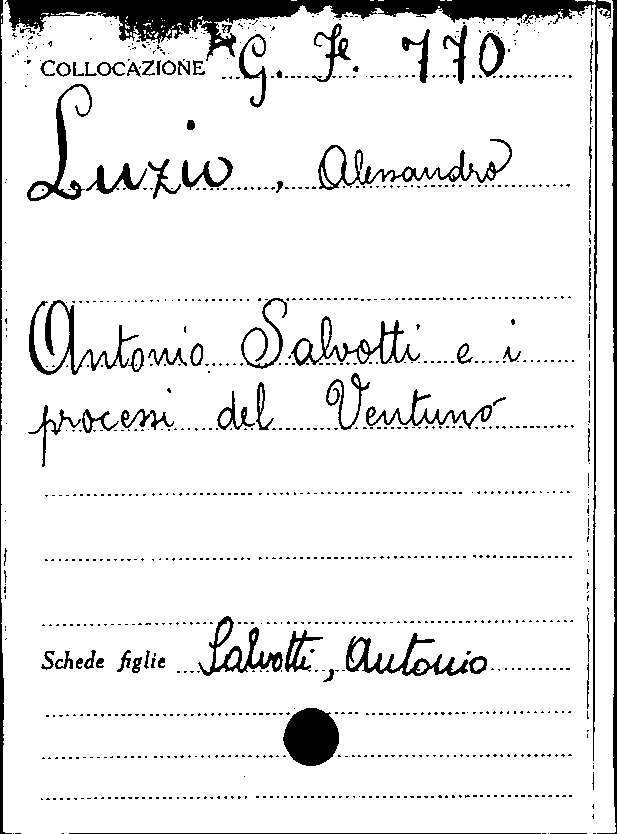 COLLOCAZIONE G. Fe. 770
Luzio, Alessandro
Antonio Salvotti e i
processi del Ventuno
Schede figlie Salvotti, Antonio